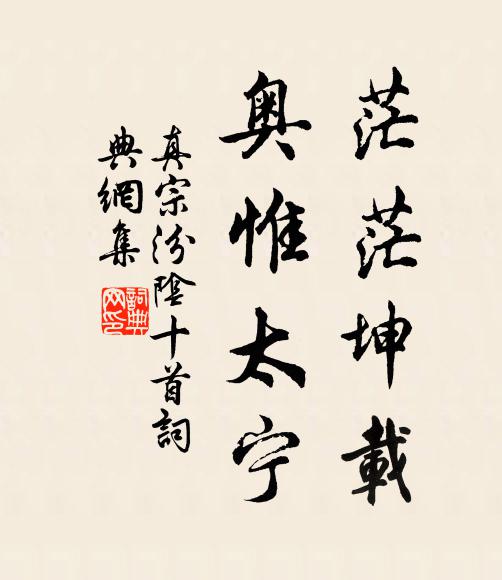 茫茫坤載
奧惟太宁
真宗汾陰十首詞
典網集
詞典网印